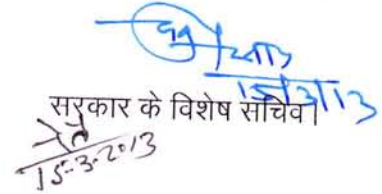 15/3/13
सरकार के विशेष सचिव।
15-3-2013